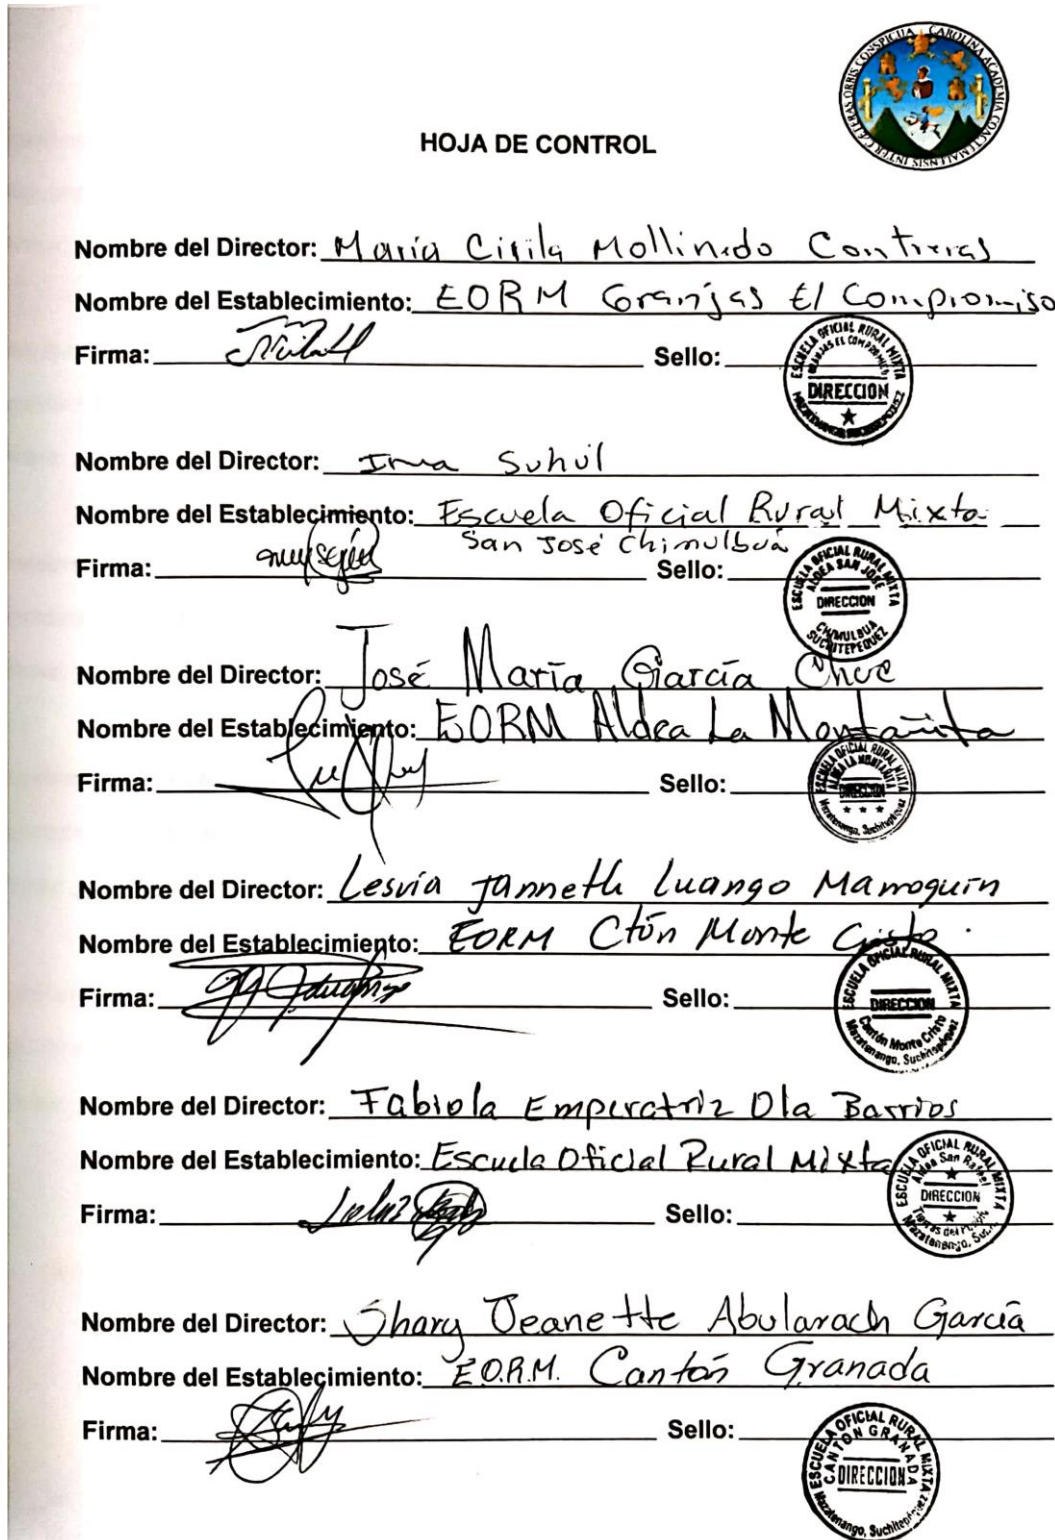 CAROLINA ACADEMIA COACTEMALENSIS INTER CÆTERAS ORBIS CONSPICUA
HOJA DE CONTROL
Nombre del Director: María Cirila Mollinedo Contreras
Nombre del Establecimiento: EORM Granjas El Compromiso
Firma: Sello:
ESCUELA OFICIAL RURAL MIXTA
GRANJAS EL COMPROMISO
DIRECCION
MAZATENANGO SUCHITEPEQUEZ
Nombre del Director: Irma Suhul
Nombre del Establecimiento: Escuela Oficial Rural Mixta
San José Chimulbuá
Firma: Sello:
ESCUELA OFICIAL RURAL MIXTA
ALDEA SAN JOSE
DIRECCION
CHIMULBUA
SUCHITEPEQUEZ
Nombre del Director: José María García Chuc
Nombre del Establecimiento: EORM Aldea La Montañita
Firma: Sello:
ESCUELA OFICIAL RURAL MIXTA
ALDEA LA MONTAÑITA
DIRECCION
Mazatenango, Suchitepéquez
Nombre del Director: Lesvia Janneth Luango Marroquín
Nombre del Establecimiento: EORM Ctón Monte Cristo.
Firma: Sello:
ESCUELA OFICIAL RURAL MIXTA
DIRECCION
Cantón Monte Cristo
Mazatenango, Suchitepéquez
Nombre del Director: Fabiola Emperatriz Ola Barrios
Nombre del Establecimiento: Escuela Oficial Rural Mixta
Firma: Sello:
ESCUELA OFICIAL RURAL MIXTA
Aldea San Rafael
DIRECCION
Tierras del
Mazatenango, Such.
Nombre del Director: Shary Jeanette Abularach García
Nombre del Establecimiento: E.O.R.M. Cantón Granada
Firma: Sello:
ESCUELA OFICIAL RURAL MIXTA
CANTON GRANADA
DIRECCION
Mazatenango, Suchitepéquez